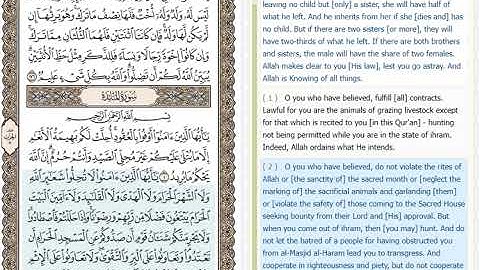 لَيْسَ لَهُۥ وَلَدٌ وَلَهُۥٓ أُخْتٌ فَلَهَا نِصْفُ مَا تَرَكَ وَهُوَ يَرِثُهَآ إِن
لَّمْ يَكُن لَّهَا وَلَدٌ فَإِن كَانَتَا ٱثْنَتَيْنِ فَلَهُمَا ٱلثُّلُثَانِ مِمَّا تَرَكَ
وَإِن كَانُوٓا۟ إِخْوَةً رِّجَالًا وَنِسَآءً فَلِلذَّكَرِ مِثْلُ حَظِّ ٱلْأُنثَيَيْنِ
يُبَيِّنُ ٱللَّهُ لَكُمْ أَن تَضِلُّوا۟ وَٱللَّهُ بِكُلِّ شَىْءٍ عَلِيمٌ ١٧٦
سُورَةُ المَائِدَةِ
بِسْمِ ٱللَّهِ ٱلرَّحْمَٰنِ ٱلرَّحِيمِ
يَٰٓأَيُّهَا ٱلَّذِينَ ءَامَنُوٓا۟ أَوْفُوا۟ بِٱلْعُقُودِ أُحِلَّتْ لَكُم بَهِيمَةُ ٱلْأَنْعَٰمِ
إِلَّا مَا يُتْلَىٰ عَلَيْكُمْ غَيْرَ مُحِلِّى ٱلصَّيْدِ وَأَنتُمْ حُرُمٌ إِنَّ ٱللَّهَ
يَحْكُمُ مَا يُرِيدُ ١ يَٰٓأَيُّهَا ٱلَّذِينَ ءَامَنُوا۟ لَا تُحِلُّوا۟ شَعَٰٓئِرَ ٱللَّهِ
وَلَا ٱلشَّهْرَ ٱلْحَرَامَ وَلَا ٱلْهَدْىَ وَلَا ٱلْقَلَٰٓئِدَ وَلَآ ءَآمِّينَ ٱلْبَيْتَ
ٱلْحَرَامَ يَبْتَغُونَ فَضْلًا مِّن رَّبِّهِمْ وَرِضْوَٰنًا وَإِذَا حَلَلْتُمْ فَٱصْطَادُوا۟
وَلَا يَجْرِمَنَّكُمْ شَنَـَٔانُ قَوْمٍ أَن صَدُّوكُمْ عَنِ ٱلْمَسْجِدِ ٱلْحَرَامِ أَن
تَعْتَدُوا۟ وَتَعَاوَنُوا۟ عَلَى ٱلْبِرِّ وَٱلتَّقْوَىٰ وَلَا تَعَاوَنُوا۟
leaving no child but [only] a sister, she will have half of
what he left. And he inherits from her if she [dies and] has
no child. But if there are two sisters [or more], they will
have two-thirds of what he left. If there are both brothers
and sisters, the male will have the share of two females.
Allah makes clear to you [His law], lest you go astray. And
Allah is Knowing of all things.
( 1 ) O you who have believed, fulfill [all] contracts.
Lawful for you are the animals of grazing livestock except
for that which is recited to you [in this Qur'an] - hunting
not being permitted while you are in the state of ihram.
Indeed, Allah ordains what He intends.
( 2 ) O you who have believed, do not violate the rites of
Allah or [the sanctity of] the sacred month or [neglect the
marking of] the sacrificial animals and garlanding [them]
or [violate the safety of] those coming to the Sacred House
seeking bounty from their Lord and [His] approval. But
when you come out of ihram, then [you may] hunt. And do
not let the hatred of a people for having obstructed you
from al-Masjid al-Haram lead you to transgress. And
cooperate in righteousness and piety, but do not cooperate